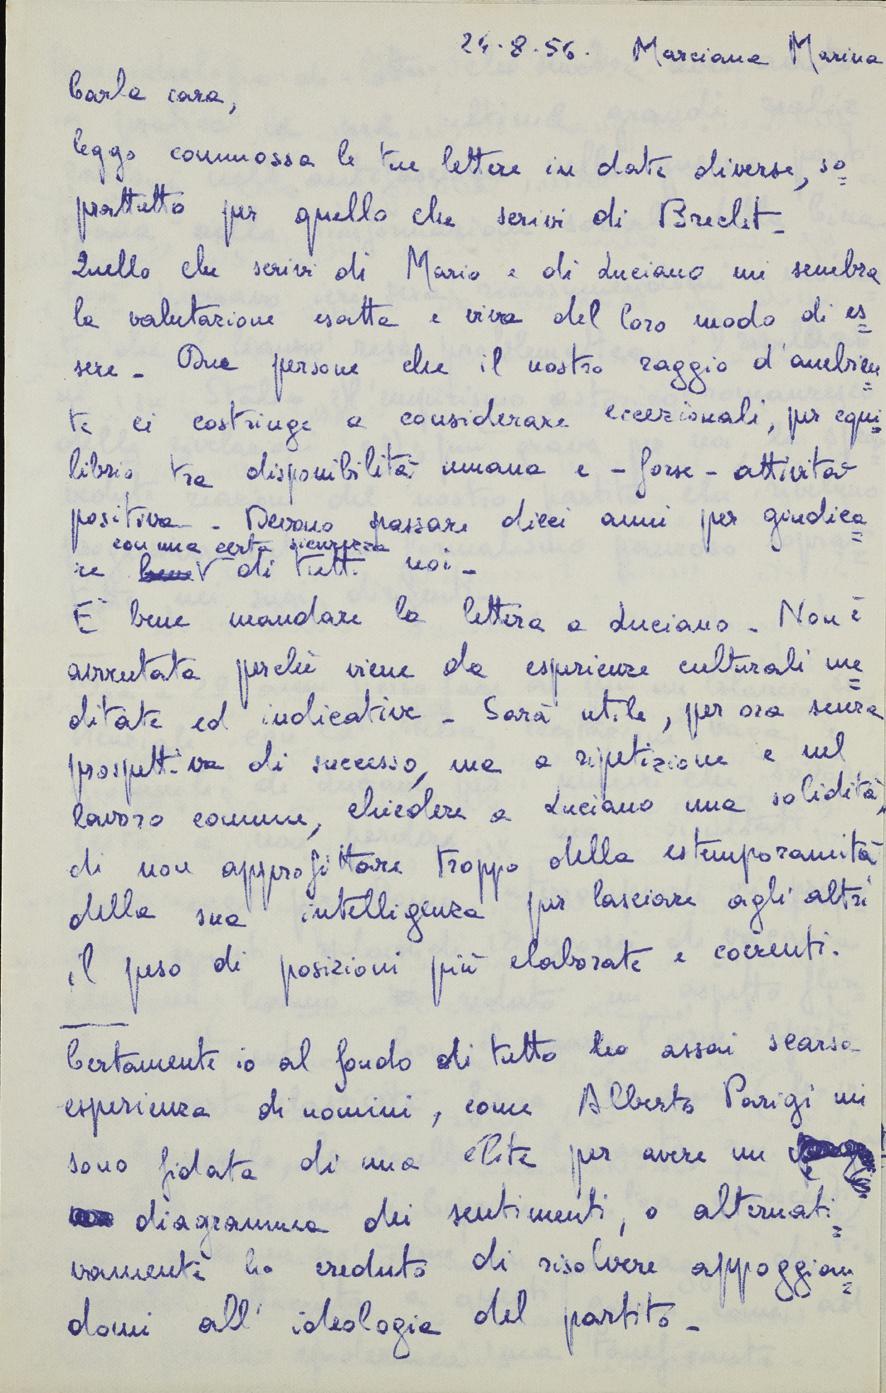 24.8.56. Marciana Marina
Carla cara,
leggo commossa le tue lettere in date diverse, so=
prattutto per quello che scrivi di Brecht_
Quello che scrivi di Mario e di Luciano mi sembra
la valutazione esatta e viva del loro modo di es=
sere _ Due persone che il nostro raggio d'ambien=
te ci costringe a considerare eccezionali, per equi=
librio tra disponibilità umana e - forse - attività
positiva _ Devono passare dieci anni per giudica=
con una certa sicurezza
re bene V di tutti noi _
E' bene mandare la lettera a Luciano _ Non è
avventata perchè viene da esperienze culturali me=
ditate ed indicative _ Sarà utile, per ora senza
prospettiva di successo, ma a ripetizione e nel
lavoro comune, chiedere a Luciano una solidità,
di non approfittare troppo della estemporaneità
della sua intelligenza per lasciare agli altri
il peso di posizioni più elaborate e coerenti.
Certamente io al fondo di tutto ho assai scarsa
esperienza di uomini, come Alberto Parigi mi
sono fidata di una élite per avere un
diagramma dei sentimenti, o alternati=
vamente ho creduto di risolvere appoggian=
domi all' ideologia del partito _